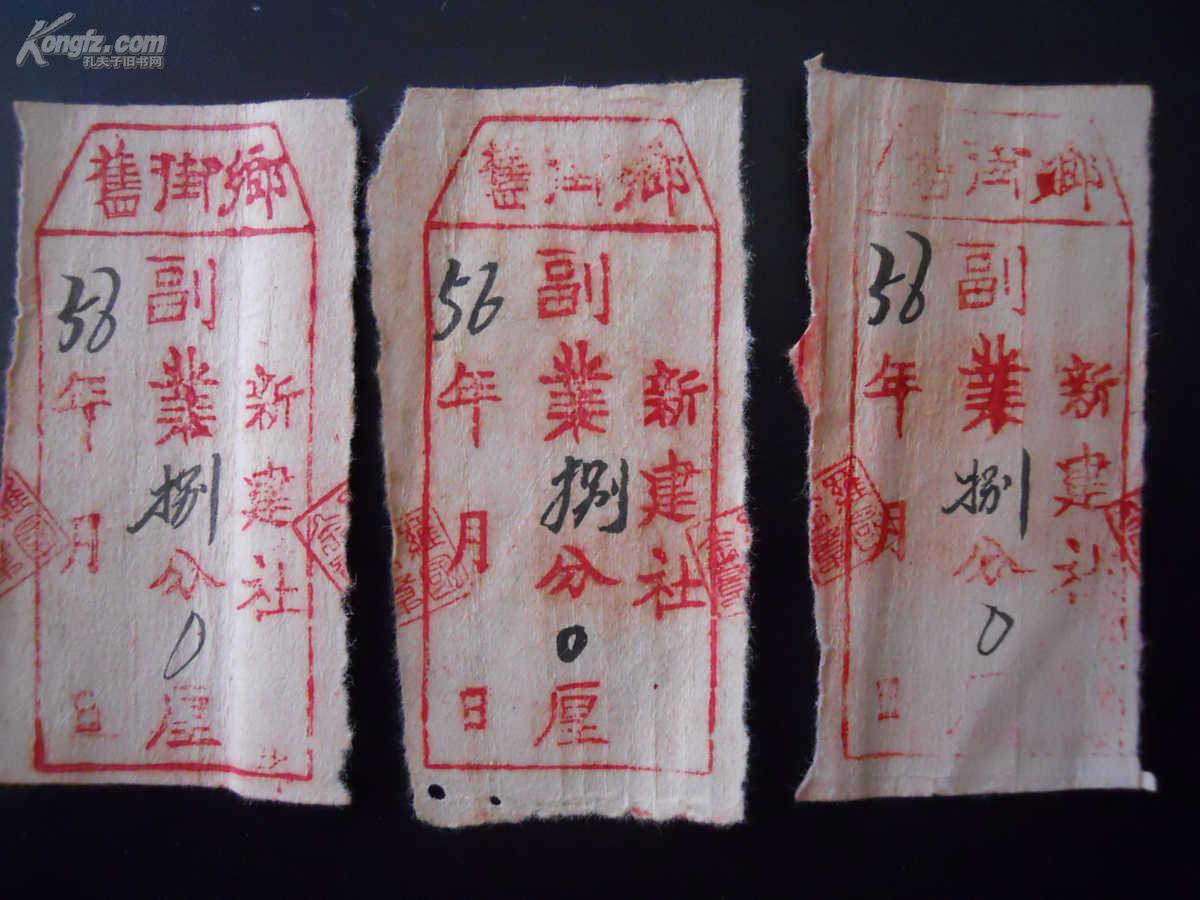 Kongfz.com
孔夫子旧书网
舊街鄉
新建社
副業捌分0厘
58年月日
舊街鄉
新建社
副業捌分0厘
56年月日
舊街鄉
新建社
副業捌分0
58年月日